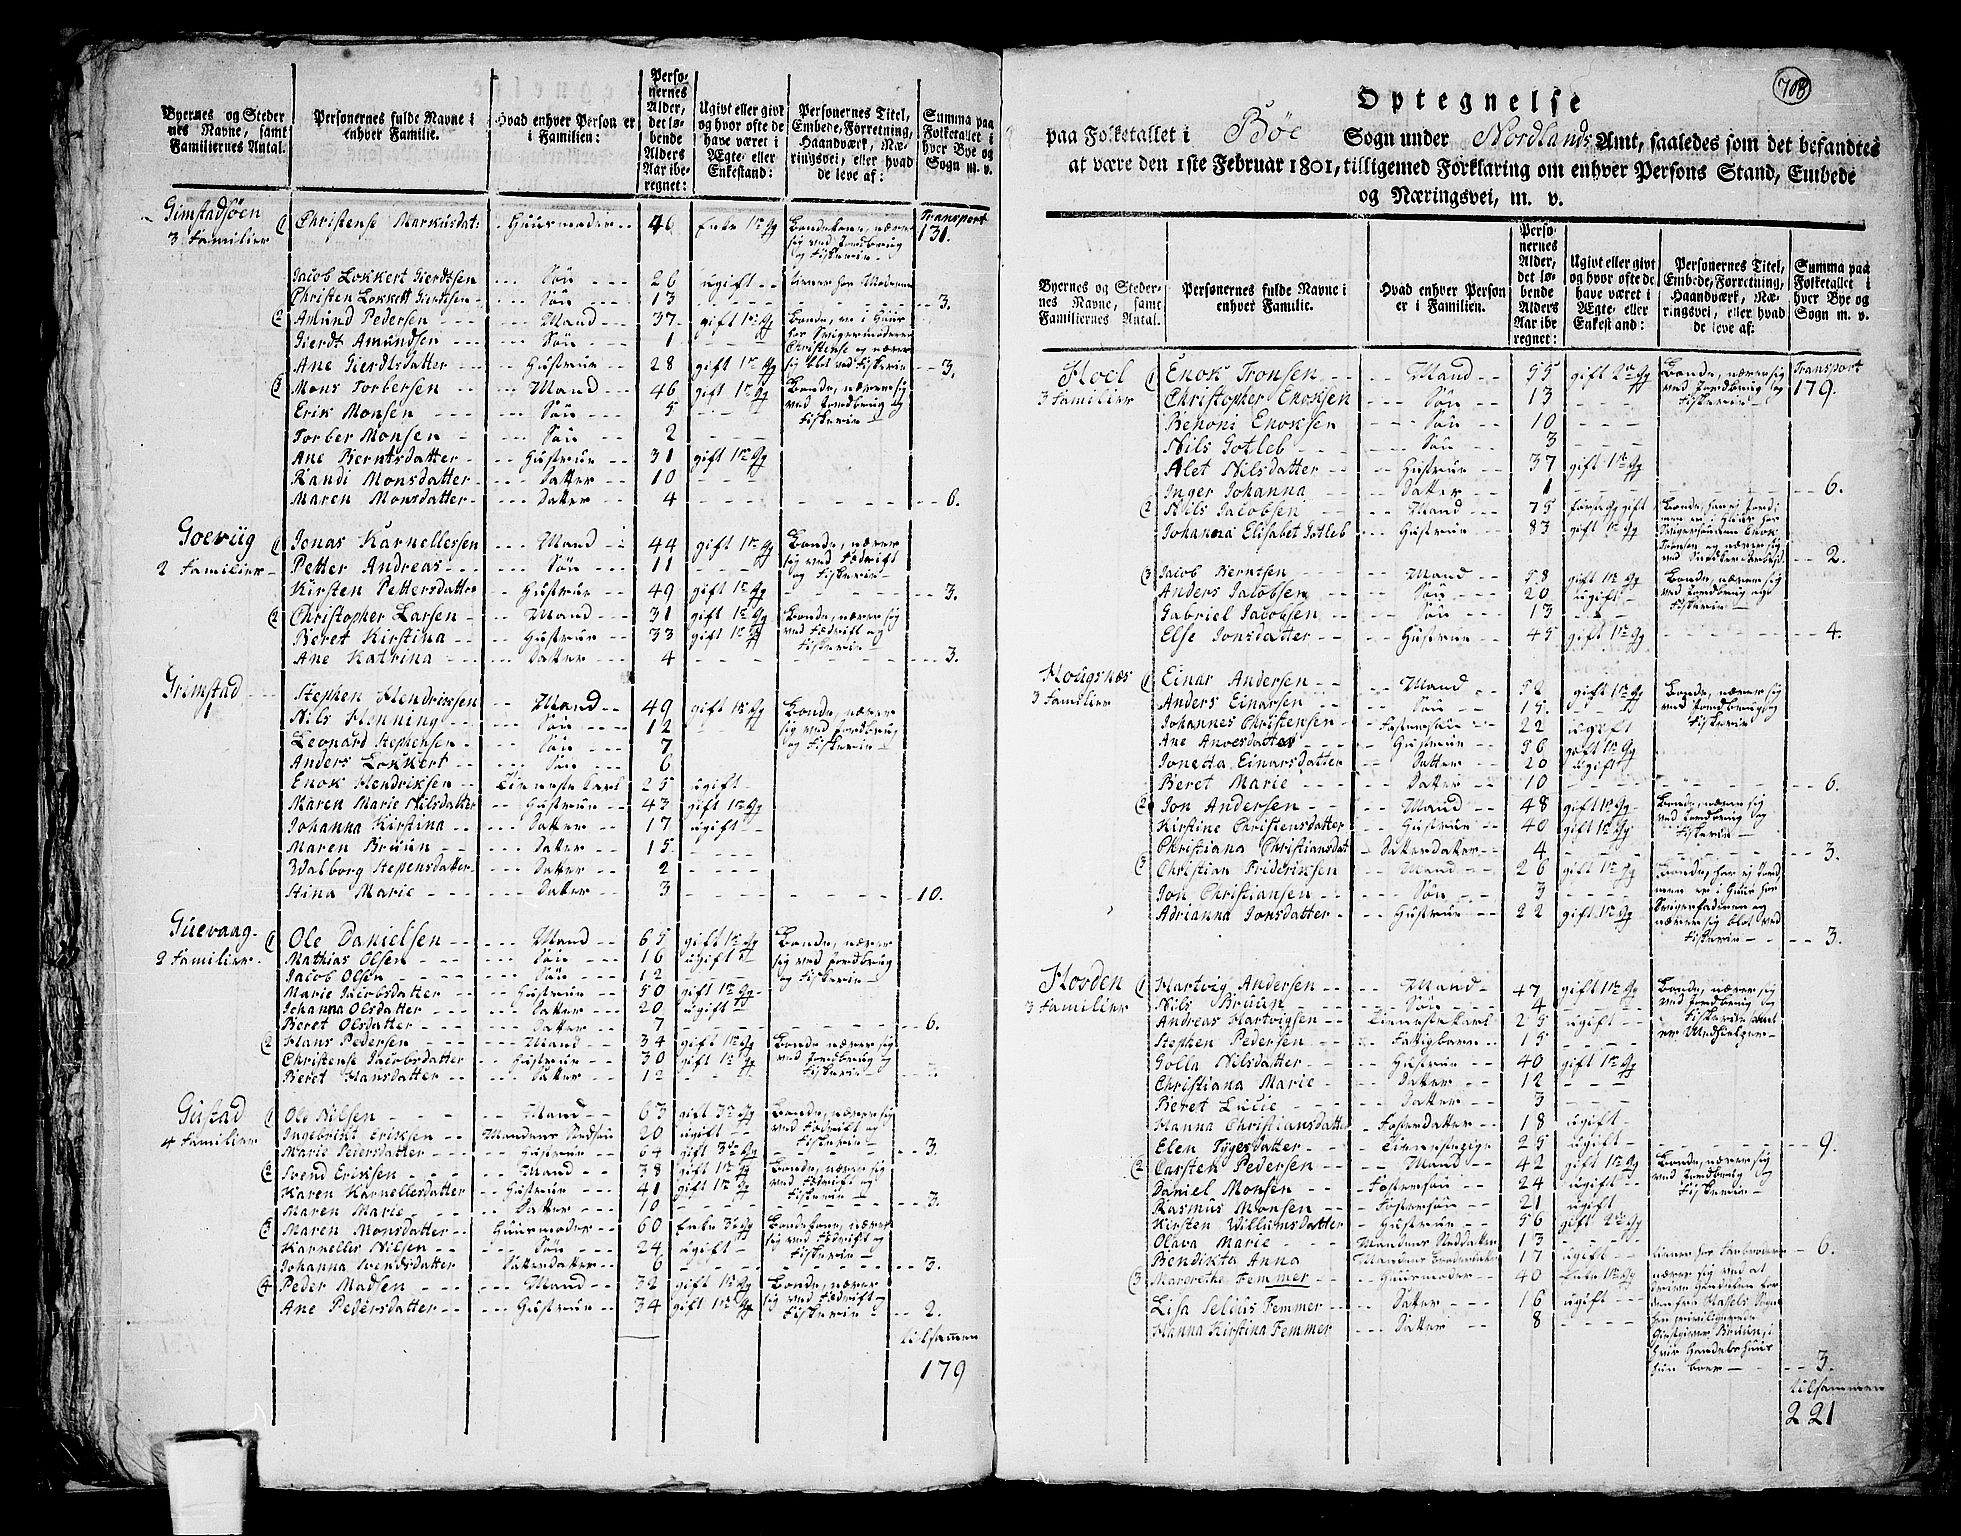 Byernes og Steder nes Navne, samt Familiernes Antal.
Personernes fulde Navne i enhver Familie.
Hvad enhver Person er i Familien:
Personernes Alder, det løbende Alders Aar iberegnet:
Ugivt eller givt og hvor ofte de have været i Ægte- eller Enkestand:
Personernes Titel, Embede, Forretning, Haandværk, Næringsvei, eller hvad de leve af:
Summa paa Folketallet i hver Bye og Sogn m. v.
Gimstadsöen 1) Christense Markusdat: Huusmoder 46 Enke 1te Gg Bondekone, nærer Transport
3 Familier sig ved Jordbrug og Fiskerie 131.
Jacob Lokkert Gierdtsen Sön 26 ugift
Christen Lokkert Gierdtsen Sön 13 3.
2) Amund Pedersen Mand 37 gift 1te Gg
Gierdt Amundsen Sön 1
Ane Gierdtsdatter Hustrue 28 gift 1te Gg 3.
3) Mons Torbersen Mand 46 gift 1te Gg Bonde, nærer sig
Erik Monsen Sön 5 ved Jordbrug og
Torber Monsen Sön 2 Fiskerie
Ane Berntsdatter Hustrue 31 gift 1te Gg
Randi Monsdatter Datter 10
Maren Monsdatter Datter 4 6.
Goeviig 1) Jonas Karnellessen Mand 44 gift 1te Gg Bonde, nærer
2 Familier Petter Andreas Sön 11 sig ved Fædrift og Fiskerie
Kirsten Pettersdatter Hustrue 49 gift 1te Gg 3.
2) Christopher Larsen Mand 31 gift 1te Gg Bonde, nærer sig
Beret Kirstina Hustrue 33 gift 1te Gg ved Fædrift og Fiskerie
Ane Katrina Datter 4 3.
Grimstad Stephen Hendrikssen Mand 49 gift 1te Gg Bonde, nærer
1 Nils Henning Sön 12 sig ved Jordbrug
Leonard Stephensen Sön 7 og Fiskerie
Anders Lokkert Sön 6
Enok Hendriksen Tienestekarl 25 ugift
Maren Marie Nilsdatter Hustrue 43 gift 1te Gg
Johanna Kirstina Datter 17 ugift
Maren Bruun Datter 15
Walborg Stepensdatter Datter 2
Stina Marie Datter 3 10.
Guevaag 1) Ole Danielsen Mand 65 gift 1te Gg Bonde, nærer
2 Familier Mathias Olsen Sön 16 ugift sig ved Jordbrug
Jacob Olsen Sön 12 og Fiskerie
Marie Jacobsdatter Hustrue 50 gift 1te Gg
Johanna Olsdatter Datter 20 ugift
Beret Olsdatter Datter 7 6.
2) Hans Pedersen Mand 34 gift 1te Gg Bonde nærer sig
Christense Jacobsdatter Hustrue 30 gift 1te Gg ved Jordbrug og
Beret Hansdatter Datter 12 Fiskerie
Gustad 1) Ole Nilsen Mand 63 gift 3die Gg Bonde, nærer sig
4 Familier Ingebrikt Eriksen Mandens Stedsön 20 ugift ved Fædrift og Fiskerie
Marie Peiersdatter Hustrue 64 gift 3die Gg 3.
2) Svend Eriksen Mand 38 gift 1te Gg Bonde, nærer sig
Karen Karnellesdatter Hustrue 41 gift 1te Gg ved Fædrift og Fiskerie
Maren Marie Datter 10 3.
3) Maren Monsdatter Huusmoder 60 Enke Bondekone, nærer
Karnelles Nilsen Sön 24 ugift sig ved Fædrift og Fiskerie
Johanna Svendsdatter Datterdatter 6 3.
4) Peder Madsen Mand 32 gift 1te Gg Bonde, nærer
Ane Pedersdatter Hustrue 34 gift 1te Gg sig ved Fædrift og Fiskerie 2.
tilsammen
179
708
Optegnelse
paa Folketallet i Böe Sogn under Nordlands Amt, saaledes som det befandtes
at være den 1ste Februar 1801, tilligemed Forklaring om enhver Persons Stand, Embede
og Næringsvei, m. v.
Byernes og Stedernes Navne, samt Familiernes Antal.
Personernes fulde Navne i enhver Familie.
Hvad enhver Person er i Familien.
Personernes Alder, det løbende Alders Aar iberegnet:
Ugivt eller givt og hvor ofte de have været i Ægte- eller Enkestand:
Personernes Titel, Embede, Forretning, Haandværk, Næringsvei, eller hvad de leve af:
Summa paa Folketallet i hver Bye og Sogn m. v.
Hoel 1) Enok Tronsen Mand 55 gift 2den Gg Bonde, nærer sig Transport
3 Familier Christopher Enoksen Sön 13 ved Jordbrug og Fiskerie 179.
Benoni Enoksen Sön 10
Nils Gotleb Sön 3
Alet Nilsdatter Hustrue 37 gift 1te Gg
Inger Johanna Datter 1 6.
2) Nils Jacobsen Mand 75
Johanna Elisabet Gotleb Hustrue 83 gift 1te Gg 2.
3) Jacob Berntsen Mand 58 gift 1te Gg Bonde, nærer sig
Anders Jacobsen Sön 20 ugift ved Jordbrug og
Gabriel Jacobsen Sön 13 Fiskerie
Else Jonsdatter Hustrue 45 gift 1te Gg 4.
Hougsnæs 1) Einar Andersen Mand 52 gift 1te Gg Bonde, nærer sig
3 Familier Anders Einarsen Sön 15 ved Jordbrug og
Johannes Christensen Fostersön 22 ugift Fiskerie
Ane Anvesdatter Hustrue 56 gift 1te Gg
Joneta Einarsdatter Datter 20 ugift
Beret Marie Datter 10 6.
2) Jon Andersen Mand 48 gift 1te Gg Bonde, nærer sig
Kirstine Christensdatter Hustrue 40 gift 1te Gg ved Jordbrug og Fiskerie
Christiana Christiansdat Datterdatter 4 3.
3) Christian Frideriksen Mand 26 gift 1te Gg Bonde, har ei Jord
Jon Christiansen Sön 3 men er i Huus hos
Adrianna Jonsdatter Hustrue 22 gift 1te Gg Svigerfaderen og nærer sig blot ved Fiskerie 3.
Hovden 1) Hartvig Andersen Mand 47 gift 1te Gg Bonde, nærer sig
3 Familier Nils Bruun Sön 4 ved Jordbrug og
Andreas Hartvigsen Tienestekarl 25 ugift Fiskerie samt
Stephen Pedersen Fattigbarn 15 er Medhielper
Golla Nilsdatter Hustrue 40 gift 1te Gg
Christiana Marie Datter 12
Beret Lucie Datter 3
Hanna Christiansdatter Fosterdatter 18 ugift
Elen Tygesdatter Tienestepige 25 ugift 9.
2) Carsten Pedersen Mand 42 gift 1te Gg Bonde, nærer sig
Daniel Monsen Fostersön 24 ugift ved Jordbrug og
Rasmus Monsen Fostersön 21 ugift Fiskerie
Kirsten Willumsdatter Hustrue 56 gift 2den Gg
Olava Marie Mandens Sted datter 13
Bendikta Anna Mandens Broderdatter 17 ugift 6.
3) Margrethe Femmer Huusmoder 40 Enke 1te Gg nærer sig ved at
Lisa Selius Femmer Datter 16 ugift drive Handelen for
Hanna Kirstina Femmer Datter 8 den fra Hasels Sogn
priviligerede
Giestgiver Bruun, i
hvis Handels huus
hun boer 3.
tilsammen
221